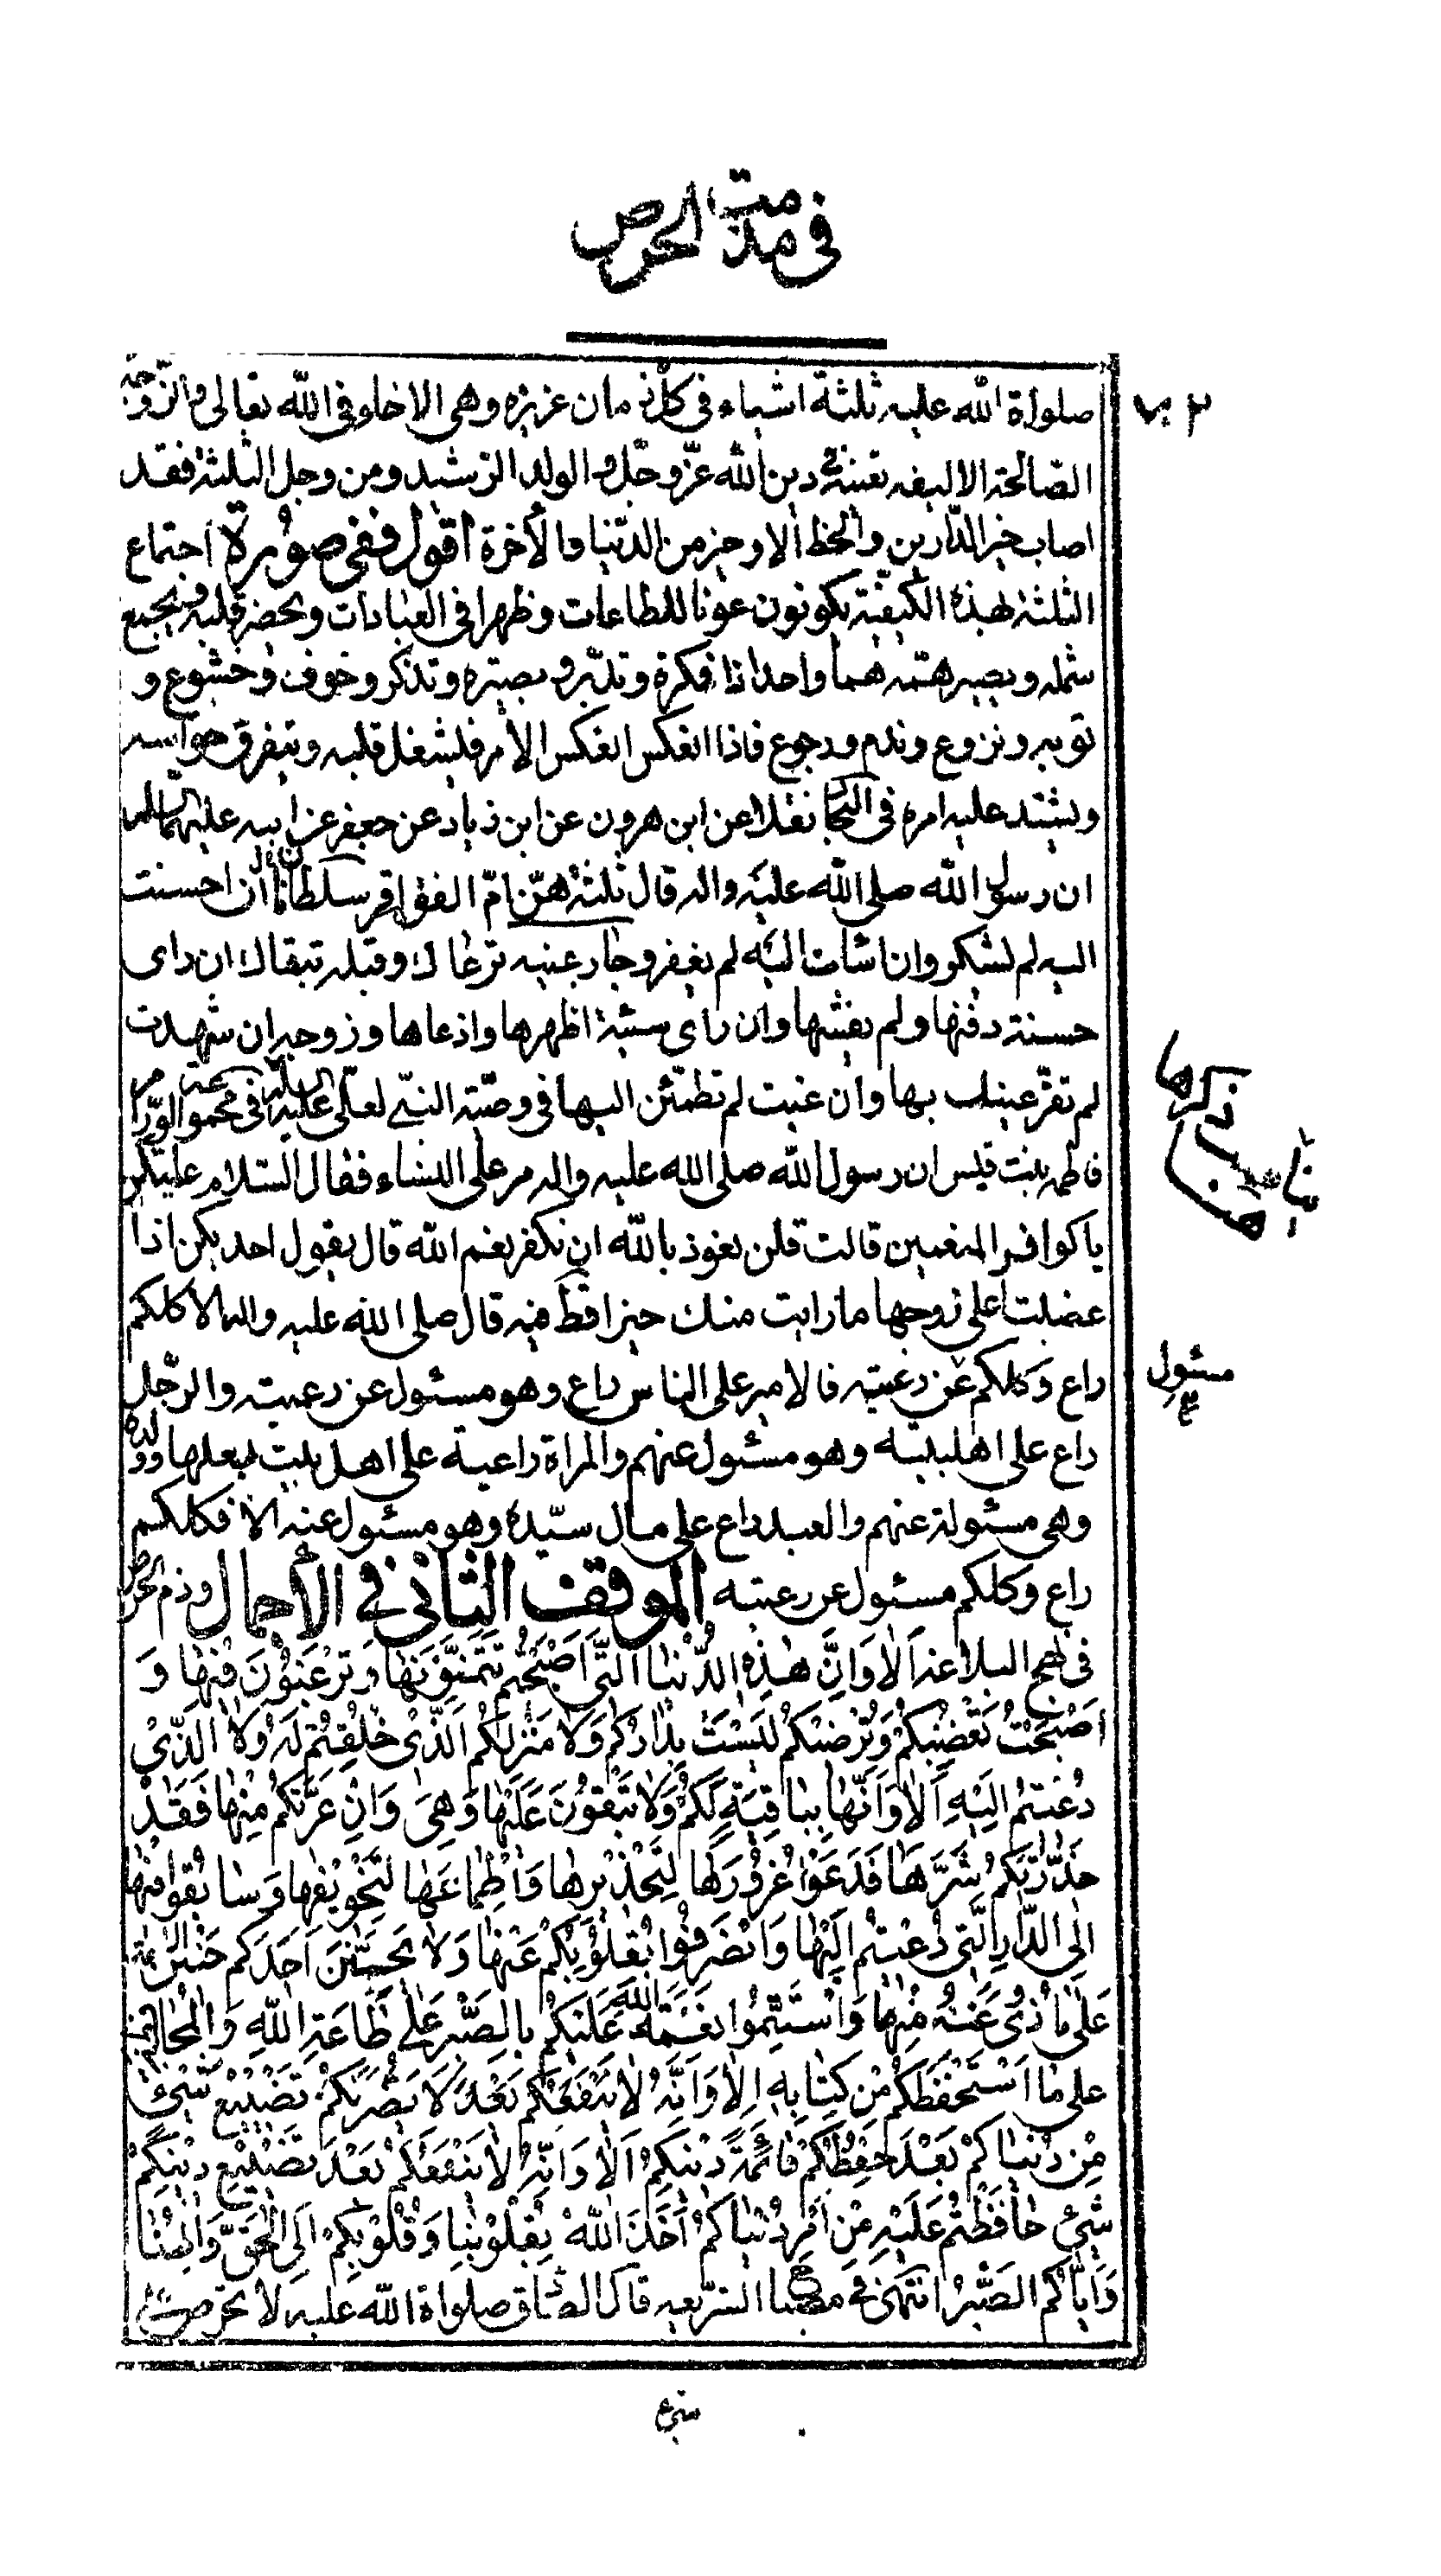 في مذمت الحرص
صلواة الله عليه ثلثة اشياء في كل زمان عزيزة وهي الاخاء في الله تعالى والزوجة
الصّالحة الاليفه تعينه في دين الله عزّ وجّل والولد الرشيد ومن وجد الثلثة فقد
اصاب خير الدّارين والحظ الاوجز من الدّنيا والأخرة اقول ففي صورة اجتماع
الثلثة لهذه الكيفيّة يكونون عونا للطاعات وظهرا في العبادات ويحضر قلبه ويجتمع
شمله ويصير همّه همّا واحدا ذا فكرة وتدبّر و بصيرة وتذكر وخوف وخشوع و
توبه ونزوع وندم ورجوع فاذا انعكس انعكس الأمر فليشغل قلبه ويتفرق حواسه
ويشتد عليه امره في البحار نقلا عن ابن هرون عن ابن زياد عن جعفر عن ابيه عليهما السلام
ان رسول الله صلى الله عليه واله قال ثلثة هنّ امّ الفواقر سلطان ان احسنت
اليه لم يشكر وان اسات اليه لم يغفر وجار عينه ترعاك وقلبه تبقاك ان راى
حسنة دفنها ولم يفشها وان رأى سيئة اظهرها واذعاها وزوجة ان شهدت
لم تقرّ عينك بها وان غبت لم تطمئن اليها في وصيّة النبيّ لعلى عليه السلام في مجموعة الورّام
فاطمه بنت قيس ان رسول الله صلى الله عليه واله مر على النساء فقال السّلام عليكن
يا كوافر المنعمين قالت قلن نعوذ بالله ان نكفر نعم الله قال يقول احد يكن اذا
غضبت على زوجها ما رايت منك خيرا قط فيه قال صلى الله عليه واله الا كلكم
راع وكلكم عن رعيته فالامير على الناس راع وهو مسئول عن رعيته والرجّل
راع على اهل بيته وهو مسئول عنهم والمراة راعية على اهل بيت بعلها وولده
وهى مسئولة عنهم والعبد راع على مال سيّده وهو مسئول عنه الا فكلكم
راع وكلكم مسئول عن رعيته الموقف الثاني في الأجمال وذم الحرص
في نهج البلاغه اَلا وَاِنَّ هٰذِهِ الدُّنْيا الَّتي اَصْبَحْتُم تَتَمَنَّوْنَها وَتَرْغَبُوْنَ فيْها وَ
اَصْبَحَتْ تُغْضِبُكُمْ وَتُرْضيكُمْ لَيْسَتْ بِدارِكُمْ وَلا مَنْزِلِكُمُ الَّذي خُلِقْتُم لَهُ وَلا الَّذي
دُعيتُم اِلَيْهِ اَلا وَاَنَّها لَيْسَتْ بِباقِيَةٍ لَكُمْ وَلا تَبْقَوْنَ عَلَيْها وَهِيَ وَاِنْ غَرَّتْكُمْ مِنْها فَقَدْ
حَذَّرَتْكُمْ شَرَّها فَدَعَوْا غُرُوْرَها لِتَحْذيرِها وَاَطْماعَها لِتَخْويفِها وَسابِقُوا فيها
اِلَى الدَّارِ الَّتي دُعيتُم اِلَيْها وَانْصَرِفُوا بِقُلُوْبِكُمْ عَنْها وَلا يَحِنَّنَّ اَحَدُكُم حَنينَ الامة
عَلى ما زُوِيَ عَنْهُ مِنْها وَاسْتَتِمُّوا نِعْمَةَ الله عَلَيْكُمْ بِالصَّبْرِ عَلى طاعَةِ اللّهِ وَالْمُحافظة
على ما اسْتَحْفَظَكُمْ مِنْ كِتابِهِ اَلا وَاَنَّهُ لا يَنْفَعُكُم بَعْدَ لا يَضُرُّكُمْ تَضْييعُ شَيْءٍ
مِنْ دُنْياكُمْ بَعْدَ حِفْظِكُمْ قائِمَةَ دينِكُمْ اَلا وَاِنَّهُ لا يَنْفَعُكُمْ بَعْدَ تَضْييعِ دينِكُمْ
شَيْءٌ حافَظْتُم عَلَيْهِ مِنْ اَمْرِ دُنْياكُمْ اَخَذَ اللهُ بِقُلُوْبِنا وَقُلُوْبِكُمْ اِلَى الْحَقِّ وَاَلْهَمَنا
وَاِيّاكُم الصَّبْرَ انتهى في مصباح الشريعه قال الصّادق صلواة الله عليه لا تحرص على
ذكرها
مسئول
شيء